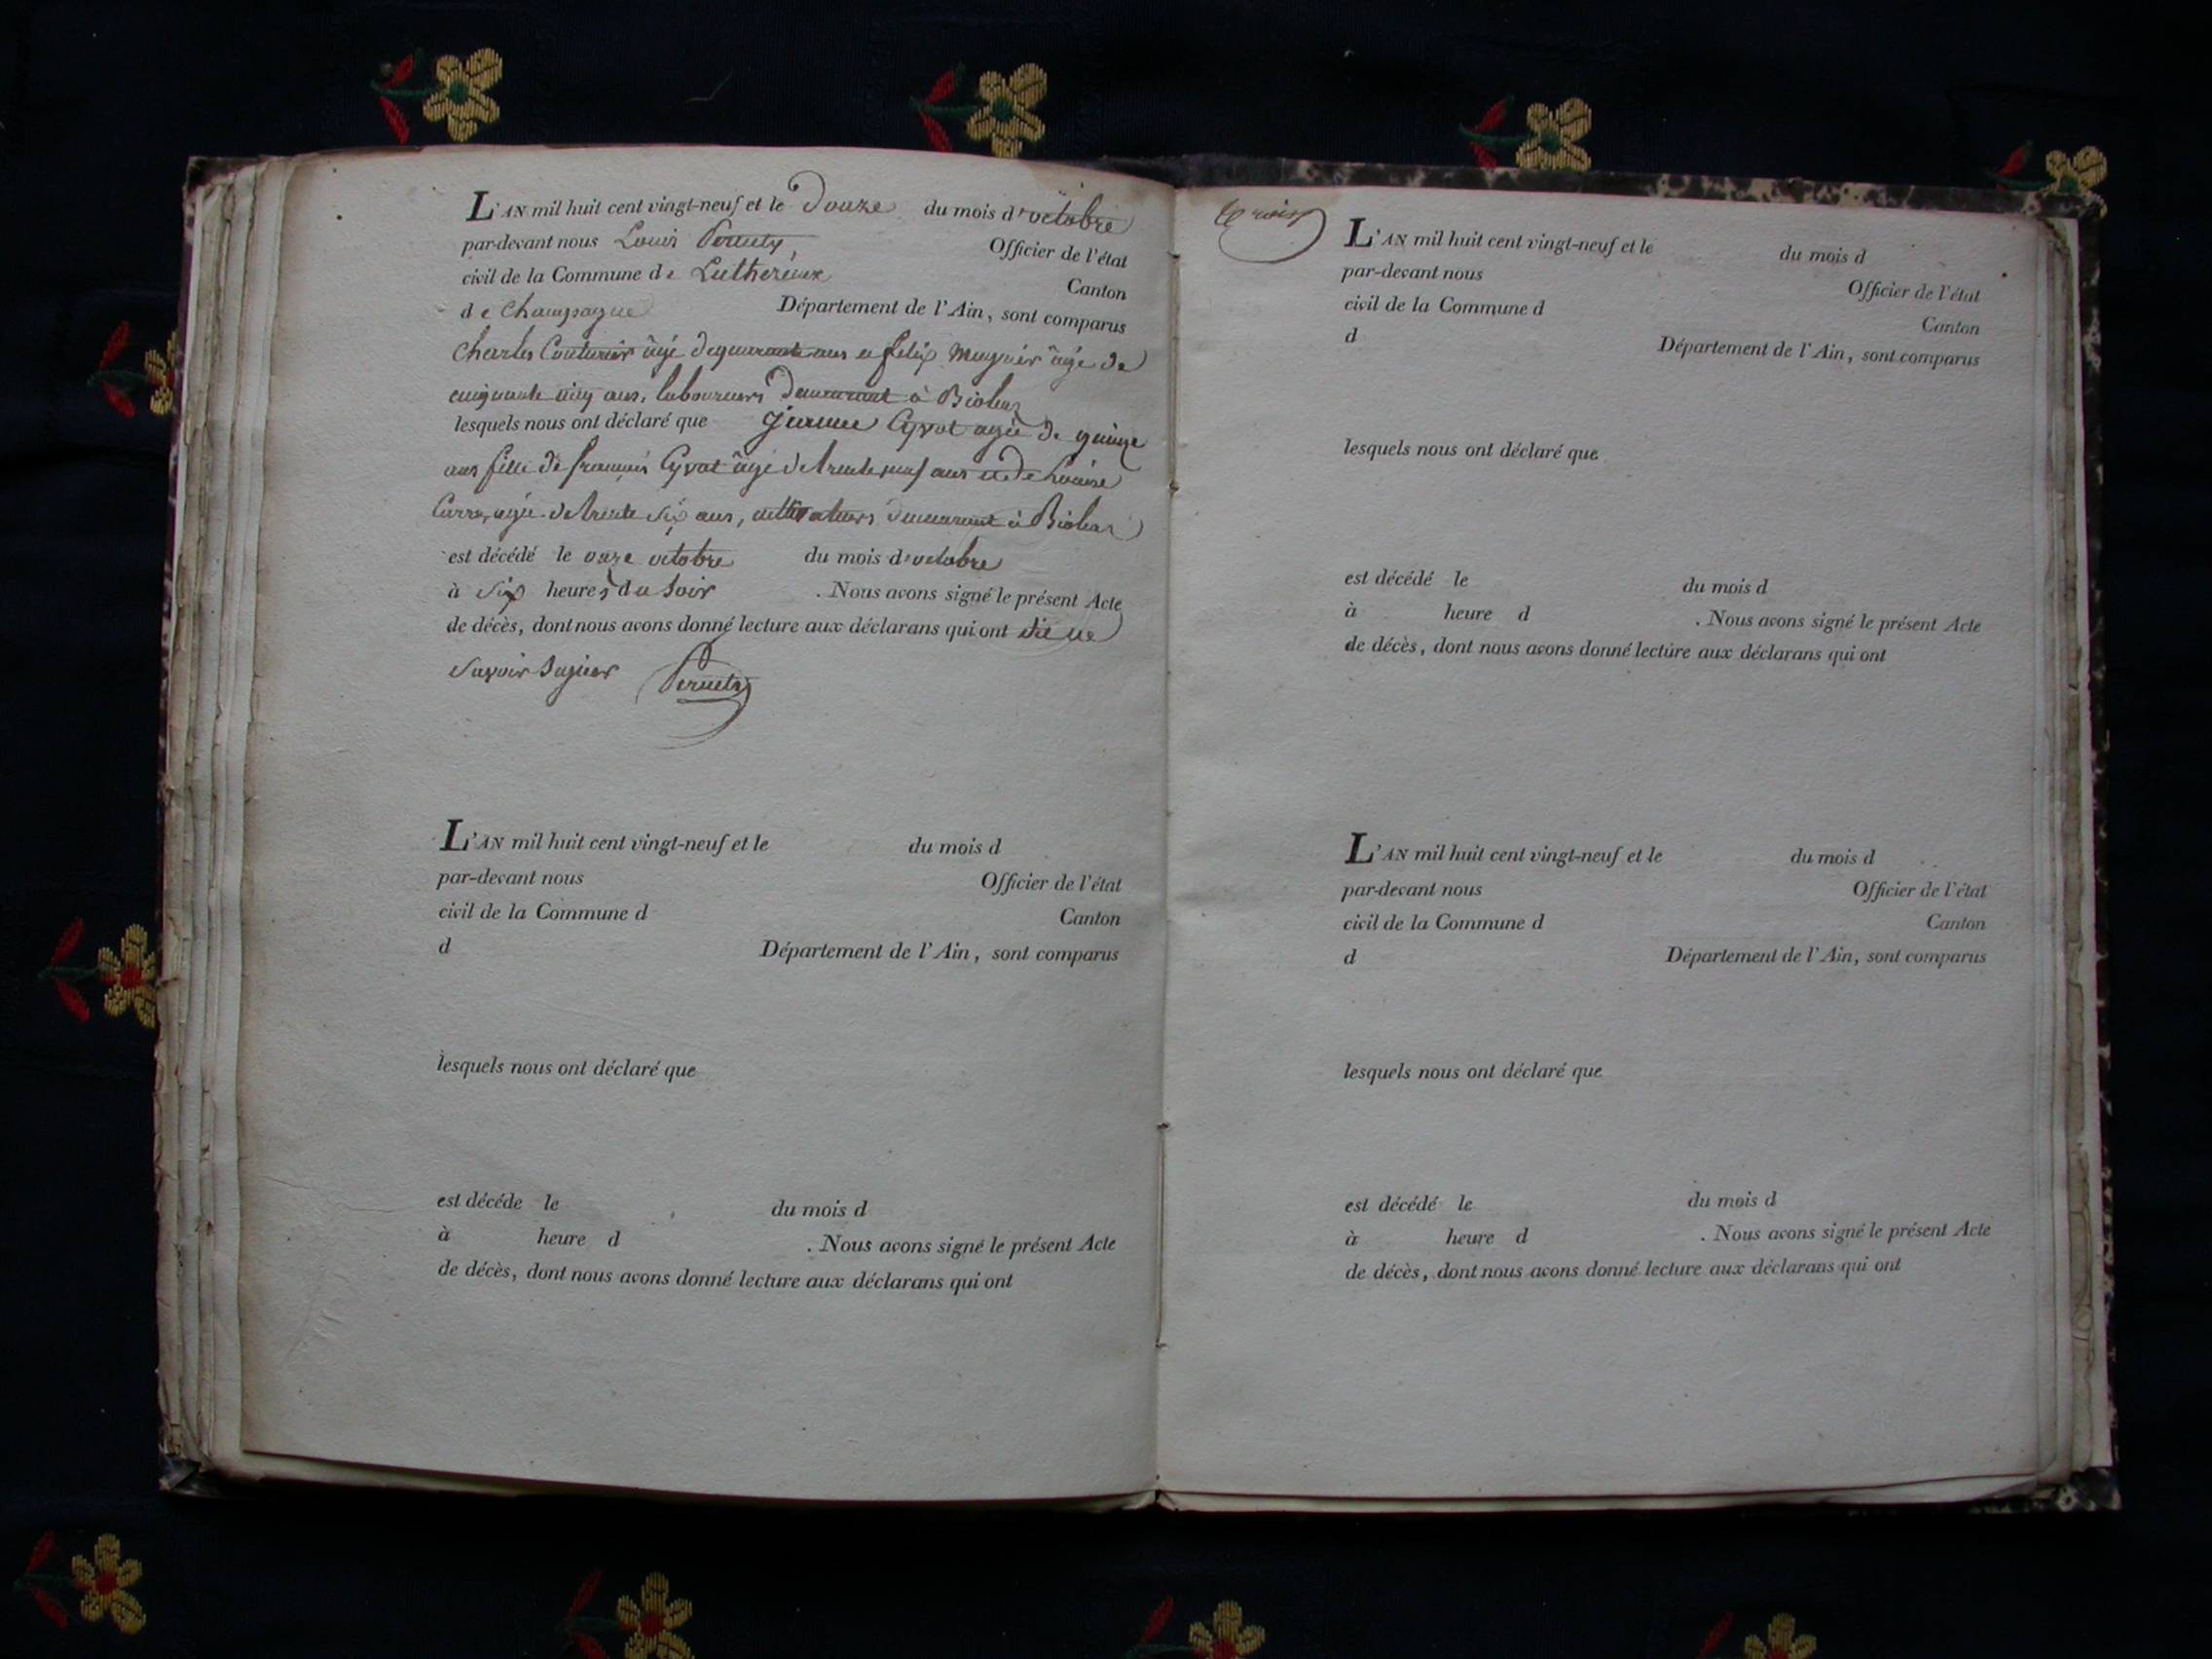 L'AN mil huit cent vingt-neuf et le douze du mois d'octobre
par-devant nous Louis Officier de l'état
civil de la Commune de Luthezieux Canton
de Champagne Département de l'Ain, sont comparus
Charles Couturier âgé de quarante ans et felix Mugnier âgé de
cinquante cinq ans, laboureurs demeurant à Bioleaz
lesquels nous ont déclaré que Jeanne Cyvot agée de quinze
ans fille de françois Cyvot âgé de trente neuf ans et de Louise
Carra, agée de trente six ans, cultivateurs demeurant à Bioleaz
est décédé le onze octobre du mois d'octobre
à six heures du soir . Nous avons signé le présent Acte
de décès, dont nous avons donné lecture aux déclarans qui ont dit ne
savoir signer
L'AN mil huit cent vingt-neuf et le du mois d
par-devant nous Officier de l'état
civil de la Commune d Canton
d Département de l'Ain, sont comparus
lesquels nous ont déclaré que
est décéde le du mois d
à heure d . Nous avons signé le présent Acte
de décès, dont nous avons donné lecture aux déclarans qui ont
trois
L'AN mil huit cent vingt-neuf et le du mois d
par-devant nous Officier de l'état
civil de la Commune d Canton
d Département de l'Ain, sont comparus
lesquels nous ont déclaré que
est décédé le du mois d
à heure d . Nous avons signé le présent Acte
de décès, dont nous avons donné lecture aux déclarans qui ont
L'AN mil huit cent vingt-neuf et le du mois d
par-devant nous Officier de l'état
civil de la Commune d Canton
d Département de l'Ain, sont comparus
lesquels nous ont déclaré que
est décédé le du mois d
à heure d . Nous avons signé le présent Acte
de décès, dont nous avons donné lecture aux déclarans qui ont